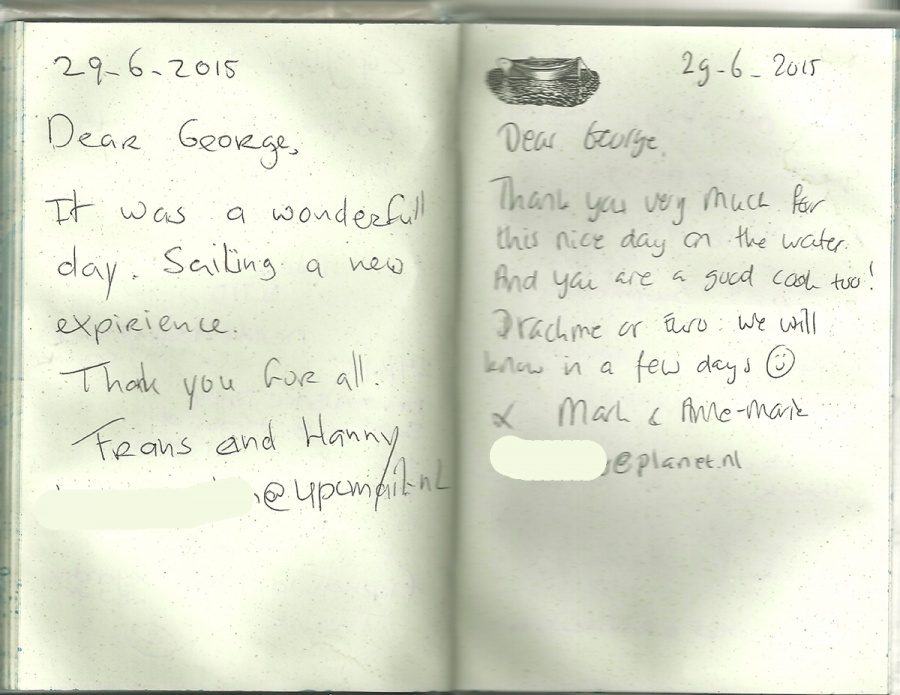 29-6-2015
Dear George,
It was a wonderfull
day. Sailing a new
expirience.
Thak you for all.
Frans and Hanny
@upcmail.nl
29-6-2015
Dear George,
Thank you very much for
this nice day on the water.
And you are a good cook too!
Drachme or Euro: we will
know in a few days ☺
x Mark & Anne-Marie
@planet.nl